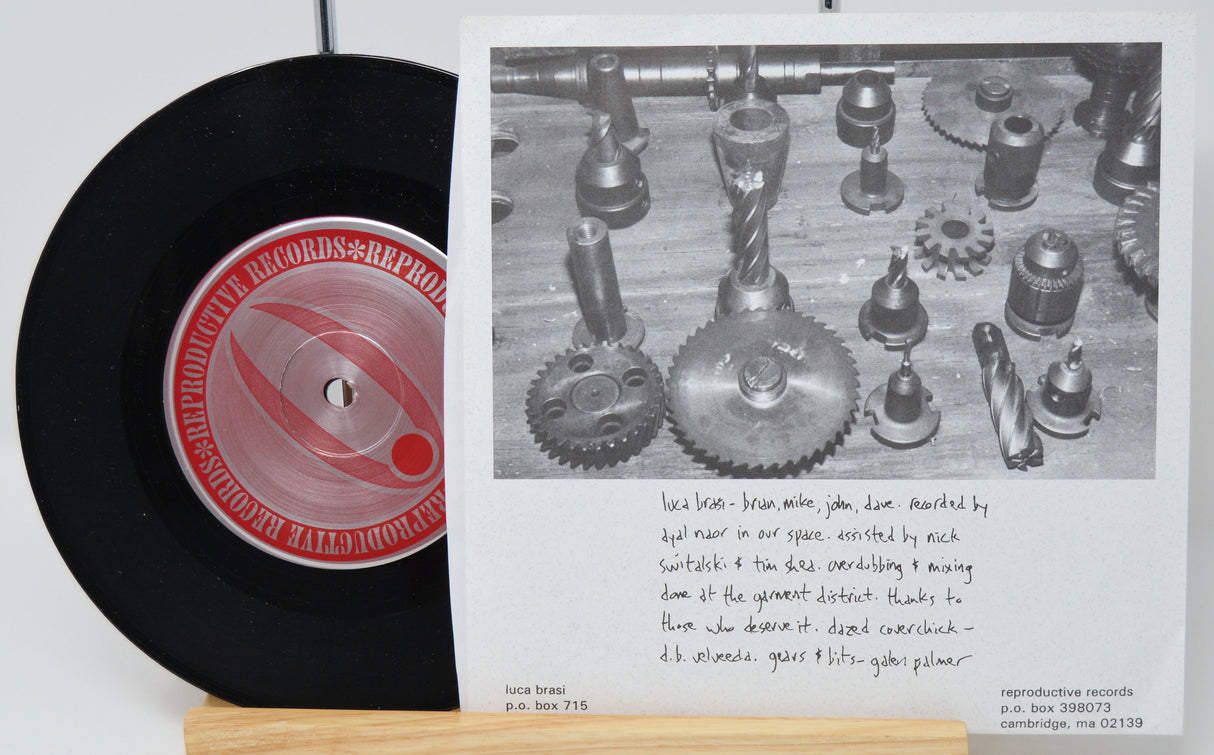 REPRODUCTIVE RECORDS*REPRODUCTIVE RECORDS*REPROD
luca brasi- brian, mike, john, dave. recorded by
ayal naor in our space. assisted by nick
switalski & tim shea. overdubbing & mixing
done at the garment district. thanks to
those who deserve it. dazed coverchick -
d.b. velveeda. gears & bits- galen palmer
luca brasi
p.o. box 715
reproductive records
p.o. box 398073
cambridge, ma 02139